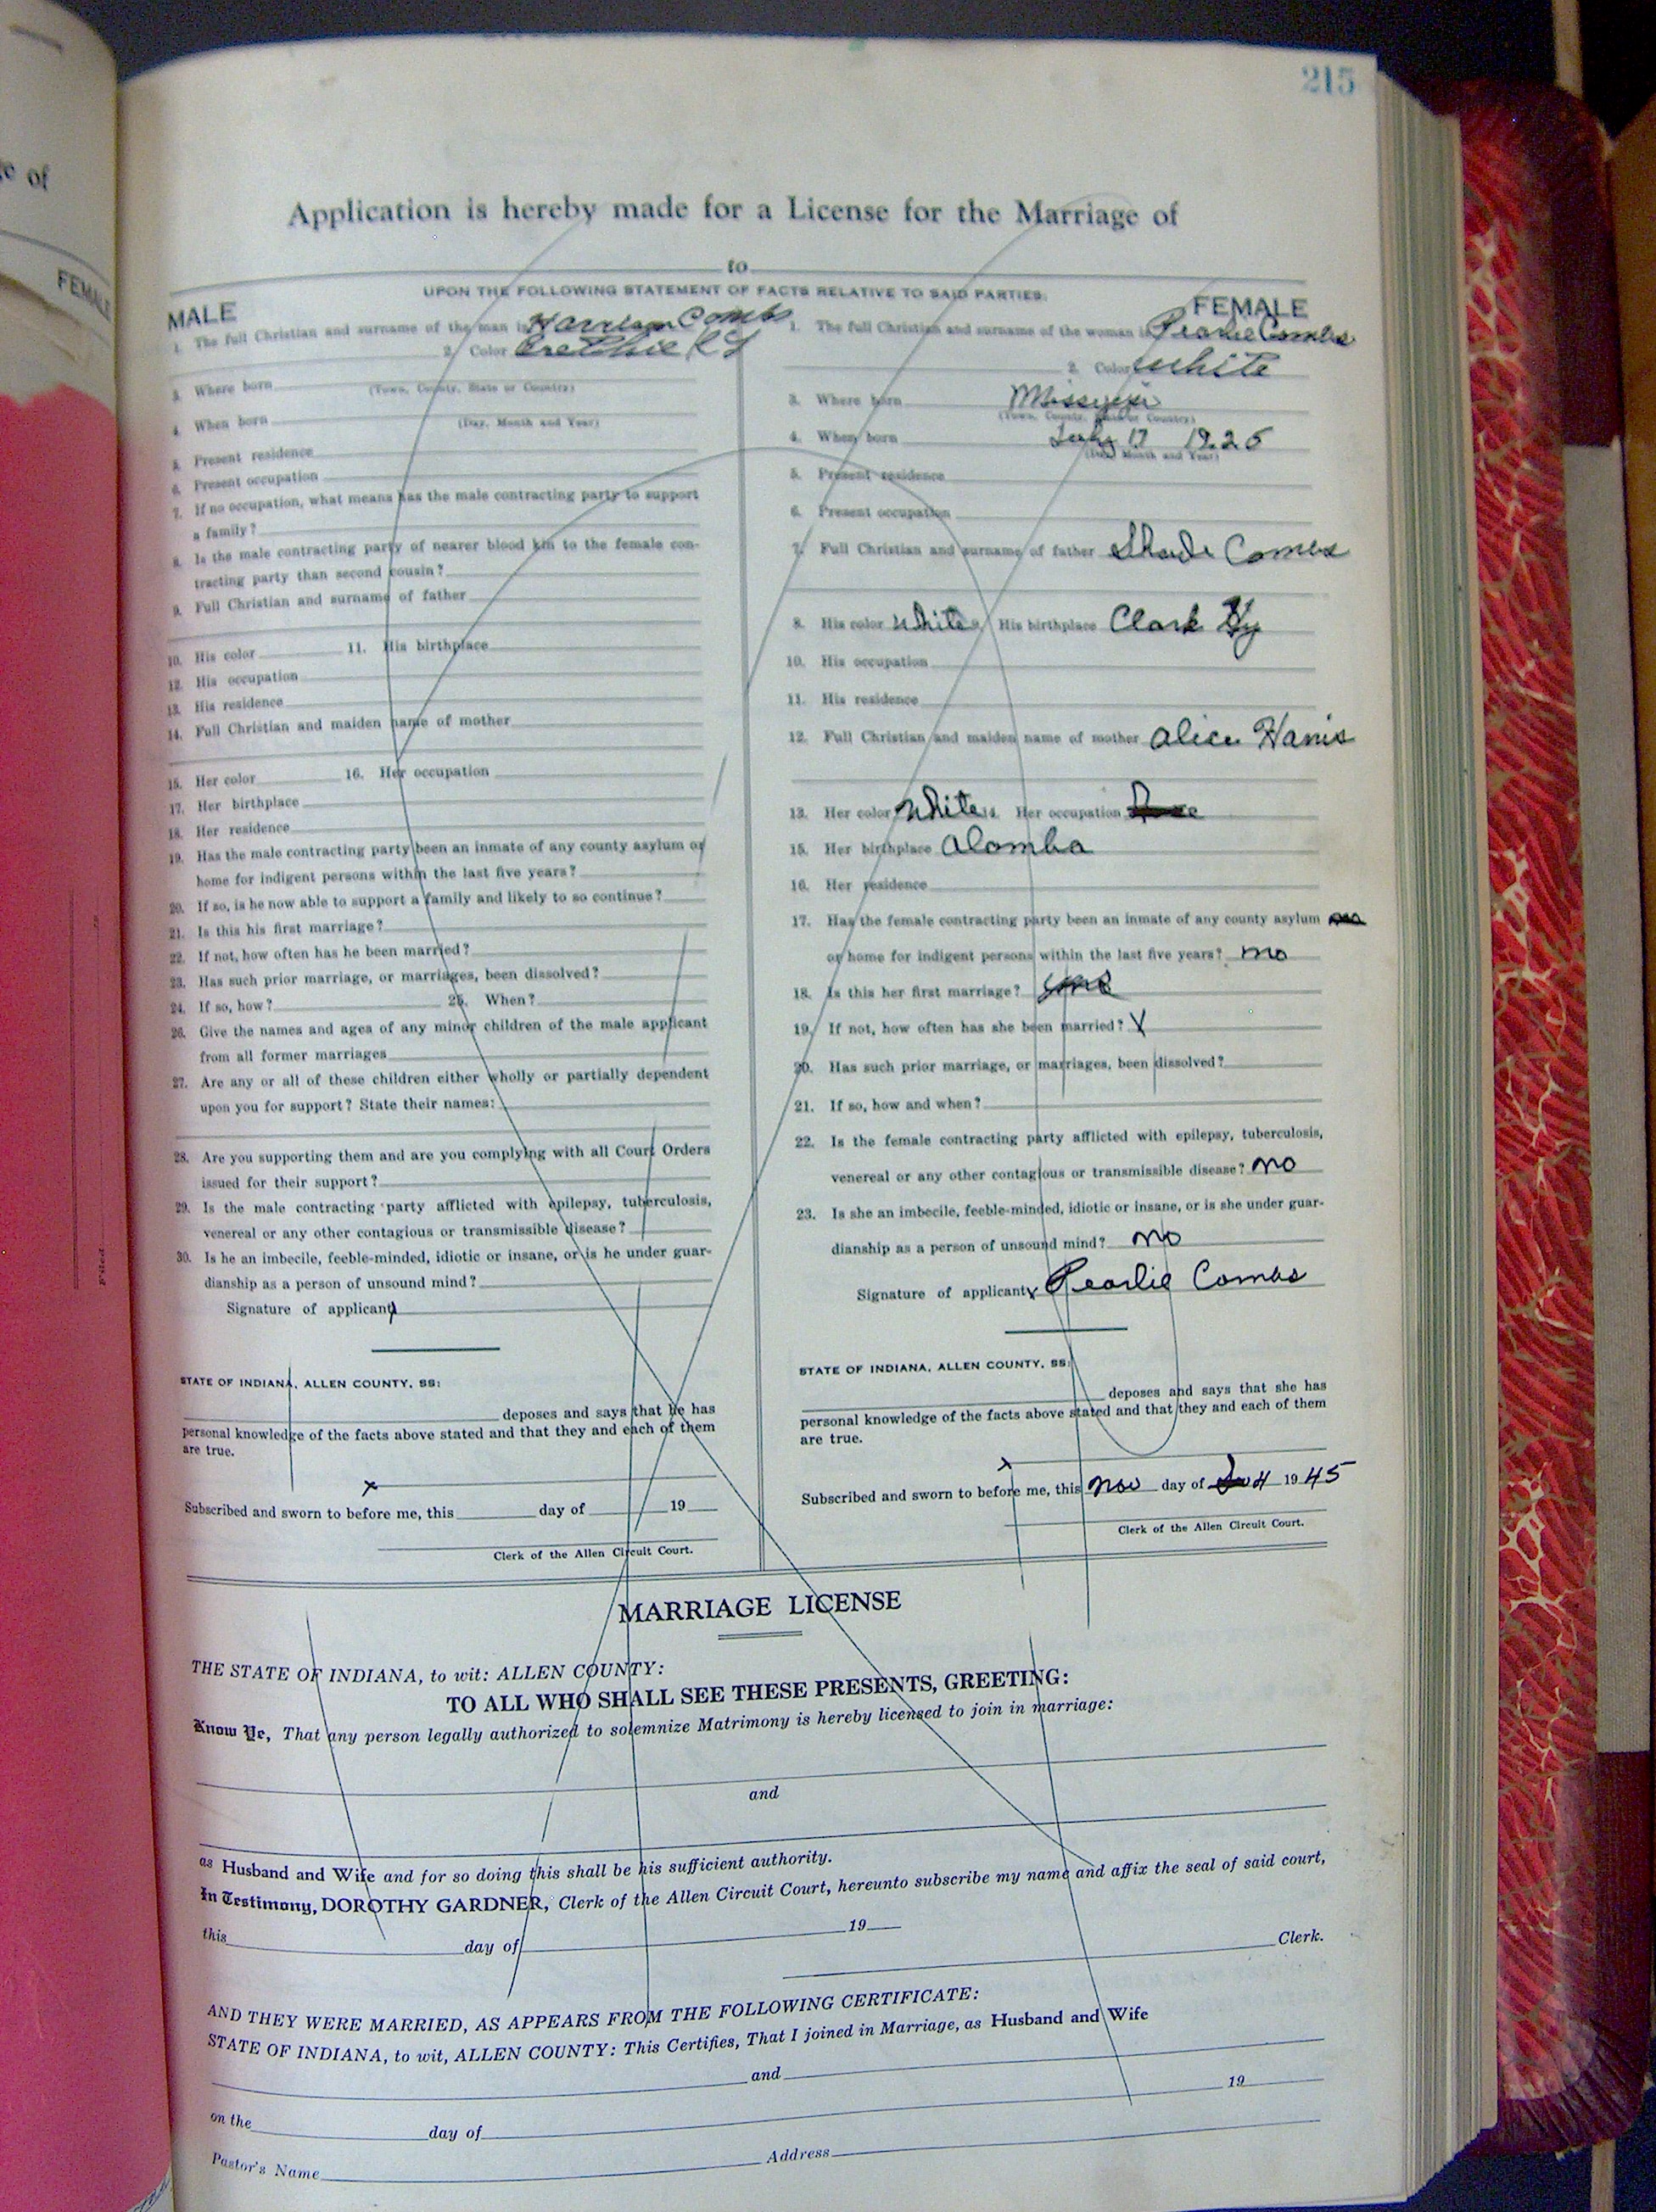 215
e of
Application is hereby made for a License for the Marriage of
to
UPON THE FOLLOWING STATEMENT OF FACTS RELATIVE TO SAID PARTIES:
FEMALE
MALE
1. The full Christian and surname of the man is Harrison Combs
2. Color
3. Where born
(Town, County, State or Country)
4. When born
(Day, Month and Year)
5. Present residence
6. Present occupation
7. If no occupation, what means has the male contracting party to support
a family?
8. Is the male contracting party of nearer blood kin to the female con-
tracting party than second cousin?
9. Full Christian and surname of father
10. His color 11. His birthplace
12. His occupation
13. His residence
14. Full Christian and maiden name of mother
15. Her color 16. Her occupation
17. Her birthplace
18. Her residence
19. Has the male contracting party been an inmate of any county asylum or
home for indigent persons within the last five years?
20. If so, is he now able to support a family and likely to so continue?
21. Is this his first marriage?
22. If not, how often has he been married?
23. Has such prior marriage, or marriages, been dissolved?
24. If so, how? 25. When?
26. Give the names and ages of any minor children of the male applicant
from all former marriages
27. Are any or all of these children either wholly or partially dependent
upon you for support? State their names:
28. Are you supporting them and are you complying with all Court Orders
issued for their support?
29. Is the male contracting party afflicted with epilepsy, tuberculosis,
venereal or any other contagious or transmissible disease?
30. Is he an imbecile, feeble-minded, idiotic or insane, or is he under guar-
dianship as a person of unsound mind?
Signature of applicant
STATE OF INDIANA, ALLEN COUNTY, SS:
deposes and says that he has
personal knowledge of the facts above stated and that they and each of them
are true.
x
Subscribed and sworn to before me, this day of 19
Clerk of the Allen Circuit Court.
FEMALE
1. The full Christian and surname of the woman is Pearlie Combs
2. Color White
3. Where born
(Town, County, State or Country)
4. When born July 17 1925
(Day, Month and Year)
5. Present residence
6. Present occupation
7. Full Christian and surname of father Shade Combs
8. His color White 9. His birthplace Clark Ky
10. His occupation
11. His residence
12. Full Christian and maiden name of mother Alice Harris
13. Her color White 14. Her occupation
15. Her birthplace Alomba
16. Her residence
17. Has the female contracting party been an inmate of any county asylum
or home for indigent persons within the last five years? no
18. Is this her first marriage?
19. If not, how often has she been married? X
20. Has such prior marriage, or marriages, been dissolved?
21. If so, how and when?
22. Is the female contracting party afflicted with epilepsy, tuberculosis,
venereal or any other contagious or transmissible disease? no
23. Is she an imbecile, feeble-minded, idiotic or insane, or is she under guar-
dianship as a person of unsound mind? no
Signature of applicant x Pearlie Combs
STATE OF INDIANA, ALLEN COUNTY, SS:
deposes and says that she has
personal knowledge of the facts above stated and that they and each of them
are true.
x
Subscribed and sworn to before me, this nov day of 4 1945
Clerk of the Allen Circuit Court.
MARRIAGE LICENSE
THE STATE OF INDIANA, to wit: ALLEN COUNTY:
TO ALL WHO SHALL SEE THESE PRESENTS, GREETING:
Know Ye, That any person legally authorized to solemnize Matrimony is hereby licensed to join in marriage:
and
as Husband and Wife and for so doing this shall be his sufficient authority.
In Testimony, DOROTHY GARDNER, Clerk of the Allen Circuit Court, hereunto subscribe my name and affix the seal of said court,
this day of 19
Clerk.
AND THEY WERE MARRIED, AS APPEARS FROM THE FOLLOWING CERTIFICATE:
STATE OF INDIANA, to wit, ALLEN COUNTY: This Certifies, That I joined in Marriage, as Husband and Wife
and
on the day of 19
Pastor's Name Address
Filed